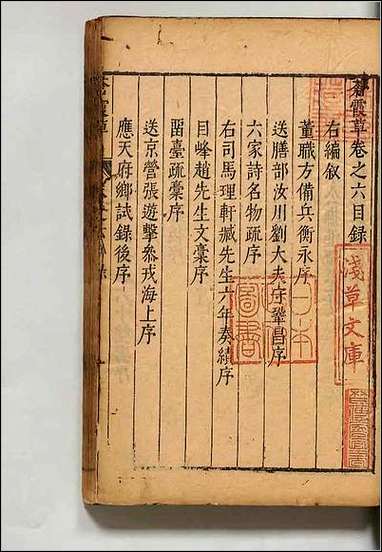 蒼霞草卷之六目録
右編叙
董職方備兵衡永序
送膳部汝川劉大夫守鞏昌序
六家詩名物疏序
右司馬理軒臧先生六年奏績序
目峰趙先生文稾序
畱臺疏稾序
送京營張遊擊叅戎海上序
應天府鄉試録後序
淺草文庫
日本
圖書
蒼霞草